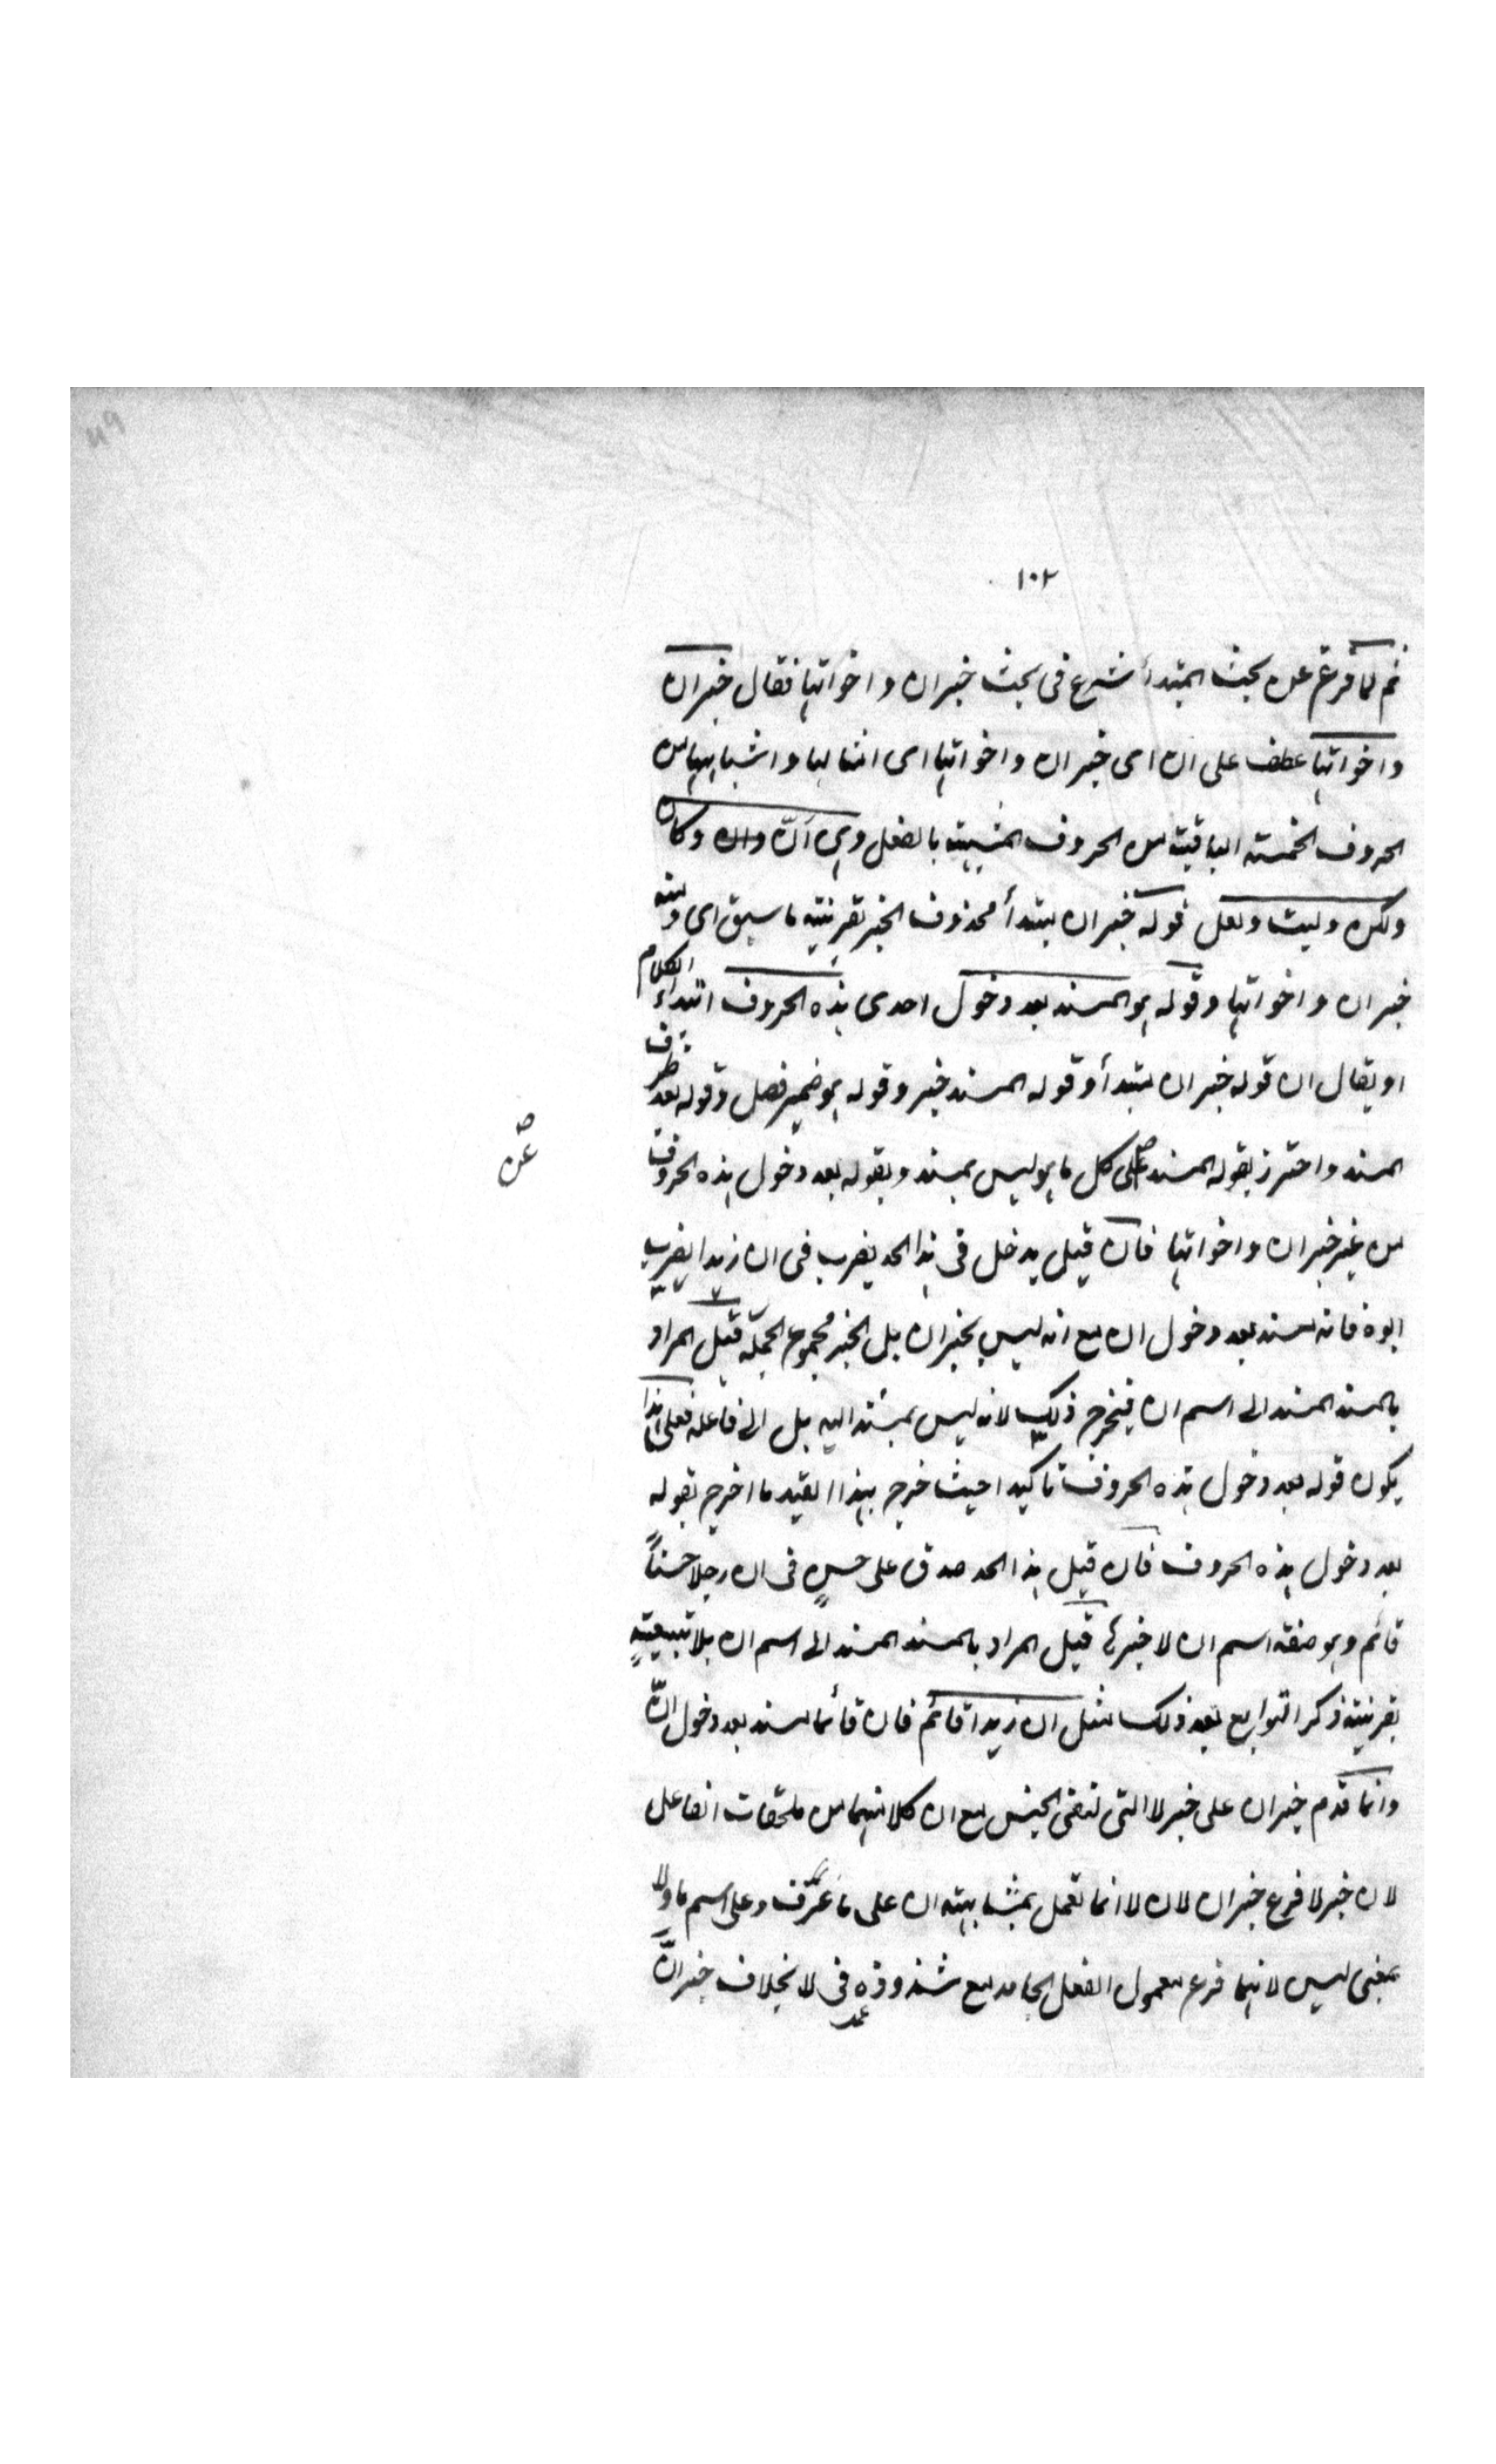 ١٠٢
ثم لما فرغ عن بحث المبتدأ شرع فى بحث خبر ان واخواتها فقال خبر ان
واخواتها عطف على ان اى خبر ان واخواتها اى امثالها واشباهها من
الحروف الخمسة الباقية من الحروف المشبهة بالفعل وهى انّ وان وكان
ولكن وليت ولعل فقوله خبر ان مبتدأ محذوف الخبر بقرينة ما سبق اى ومنه
خبر ان واخواتها وقوله هو المسند بعد دخول احدى هذه الحروف ابتداء الكلام
او يقال ان قوله خبر ان مبتدأ وقوله المسند خبر وقوله هو ضمير فصل وقوله بعد ظرف
المسند واحترز بقوله المسند على كل ما هو ليس بمسند وبقوله بعد دخول هذه الحروف
عن
من غير خبر ان واخواتها فان قيل يدخل فى هذا الحد يضرب فى ان زيدا يضرب
ابوه فانه مسند بعد دخول ان مع انه ليس بخبر ان بل الخبر مجموع الجملة قيل المراد
بالمسند المسند الى اسم ان فيخرج ذلك لانه ليس بمسند اليه بل الى فاعله فعلى هذا
يكون قوله بعد دخول هذه الحروف تاكيدا حيث خرج بهذا القيد ما اخرج بقوله
بعد دخول هذه الحروف فان قيل هذا الحد صدق على حسن فى ان رجلا حسناً
قائم وهو صفة اسم ان لا خبرها قيل المراد بالمسند المسند الى اسم ان بلا تبعية
بقرينة ذكر التوابع بعد ذلك مثل ان زيدا قائم فان قائما مسند بعد دخول انّ
وانما قدم خبر ان على خبر لا التى لنفى الجنس مع ان كلا منهما من ملحقات الفاعل
لان خبر لا فرع خبر ان لان لا انما تعمل بمشابهة ان على ما عرف وعلى اسم ما ولا
بمعنى ليس لانهما فرع معمول الفعل الجامد مع شذوذه فى لا بخلاف خبر انّ